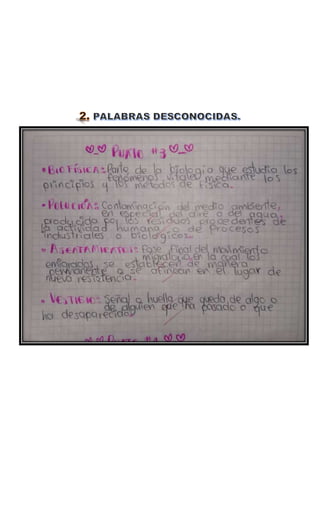 2. PALABRAS DESCONOCIDAS.
♡_♡ PUNTO #3 ♡_♡
• BIOFÍSICA: Parte de la biología que estudia los
fenómenos vitales mediante los
principios y los métodos de física.
• POLUCIÓN: Contaminación del medio ambiente,
en especial del aire o del agua,
producida por los residuos procedentes de
la actividad humana o de procesos
industriales o biológicos.
• ASENTAMIENTO: Fase final del movimiento
migratorio en la cual los
emigrados se establecen de manera
permanente o se afincan en el lugar de
nueva residencia.
• VESTIGIO: Señal o huella que queda de algo o
de alguien que ha pasado o que
ha desaparecido